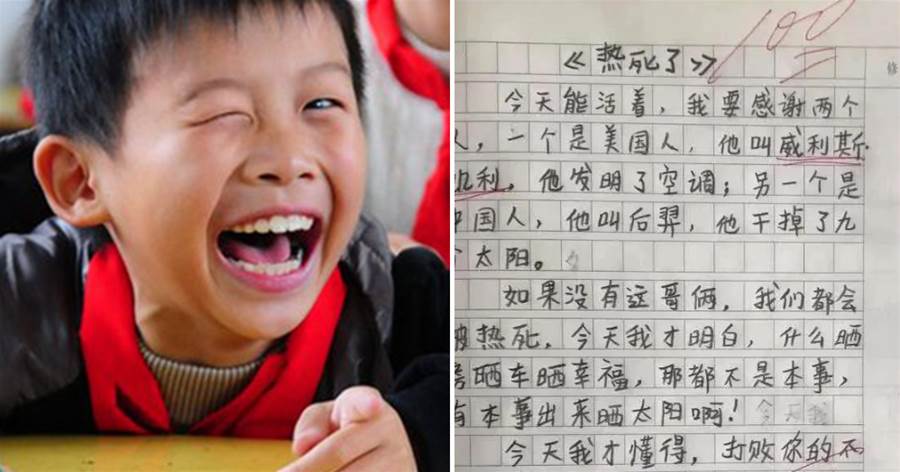 100
修
《热死了》
今天能活着,我要感谢两个
人,一个是美国人,他叫威利斯·
利,他发明了空调;另一个是
中国人,他叫后羿,他干掉了九
个太阳。
如果没有这哥俩,我们都会
被热死,今天我才明白,什么晒
晒车晒幸福,那都不是本事,
有本事出来晒太阳啊!今天我
今天我才懂得,打败你的不